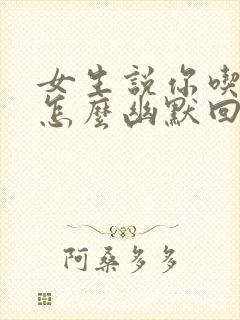 女生説你喫
怎麼幽默回
阿桑多多